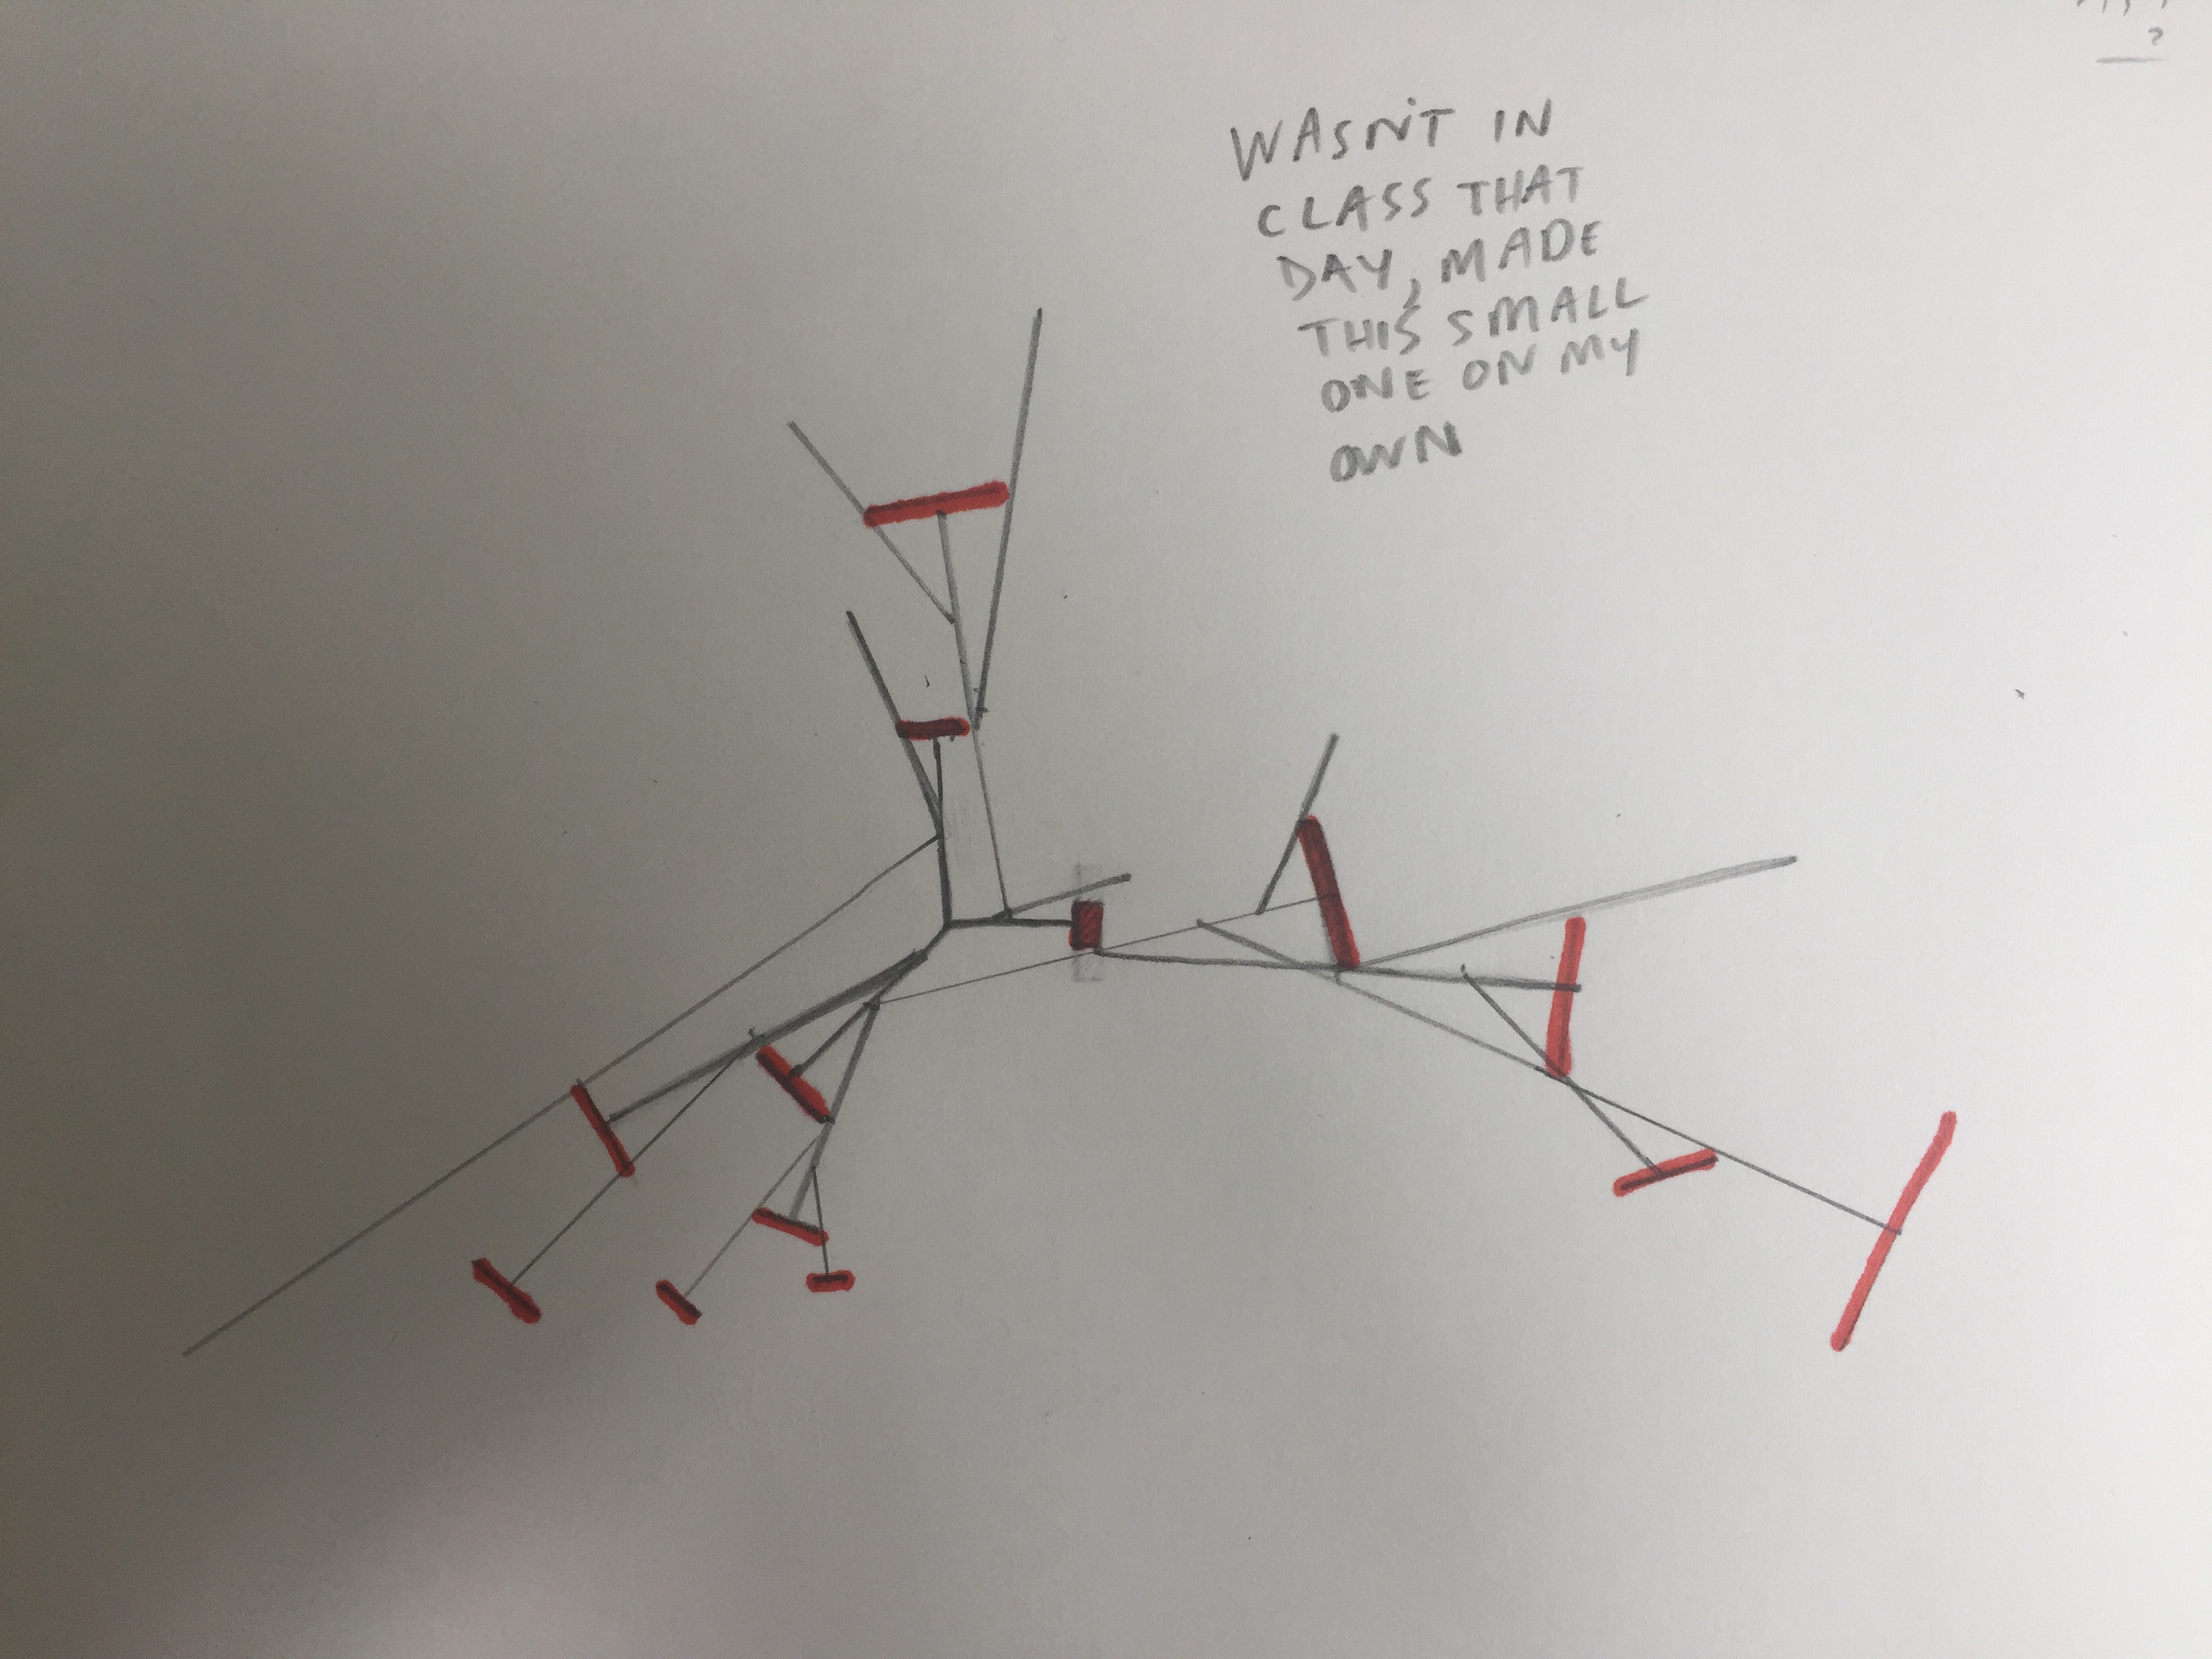 WASN'T IN
CLASS THAT
DAY, MADE
THIS SMALL
ONE ON MY
OWN